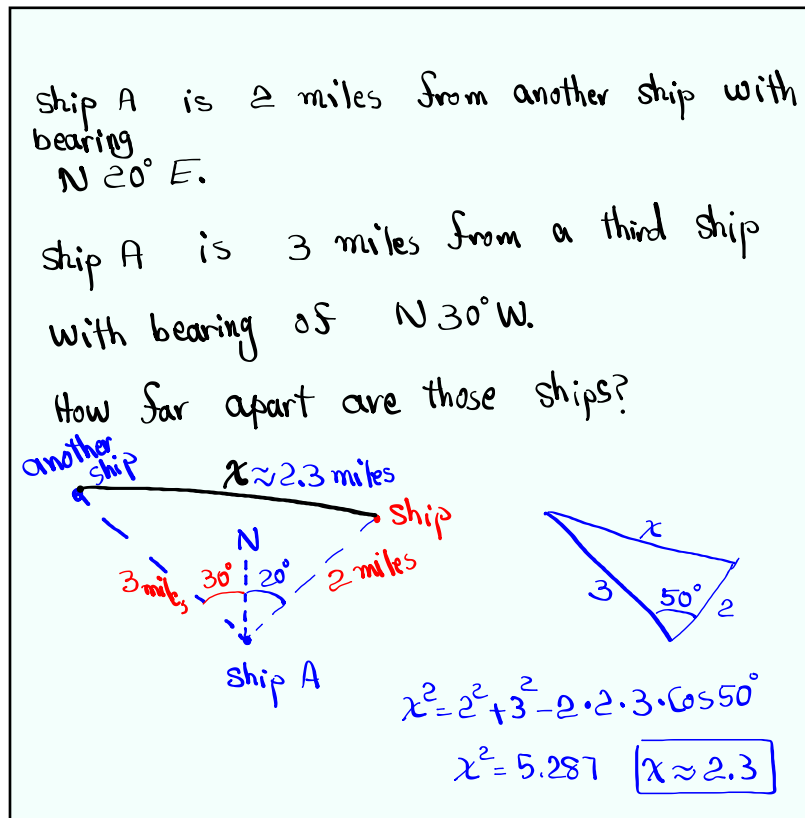 Ship A is 2 miles from another ship with
bearing
N 20° E.
Ship A is 3 miles from a third ship
with bearing of N 30° W.
How far apart are those ships?
another
ship
x ≈ 2.3 miles
ship
N
3 miles
30°
20°
2 miles
ship A
x
3
50°
2
x² = 2² + 3² - 2 • 2 • 3 • Cos 50°
x² = 5.287 x ≈ 2.3